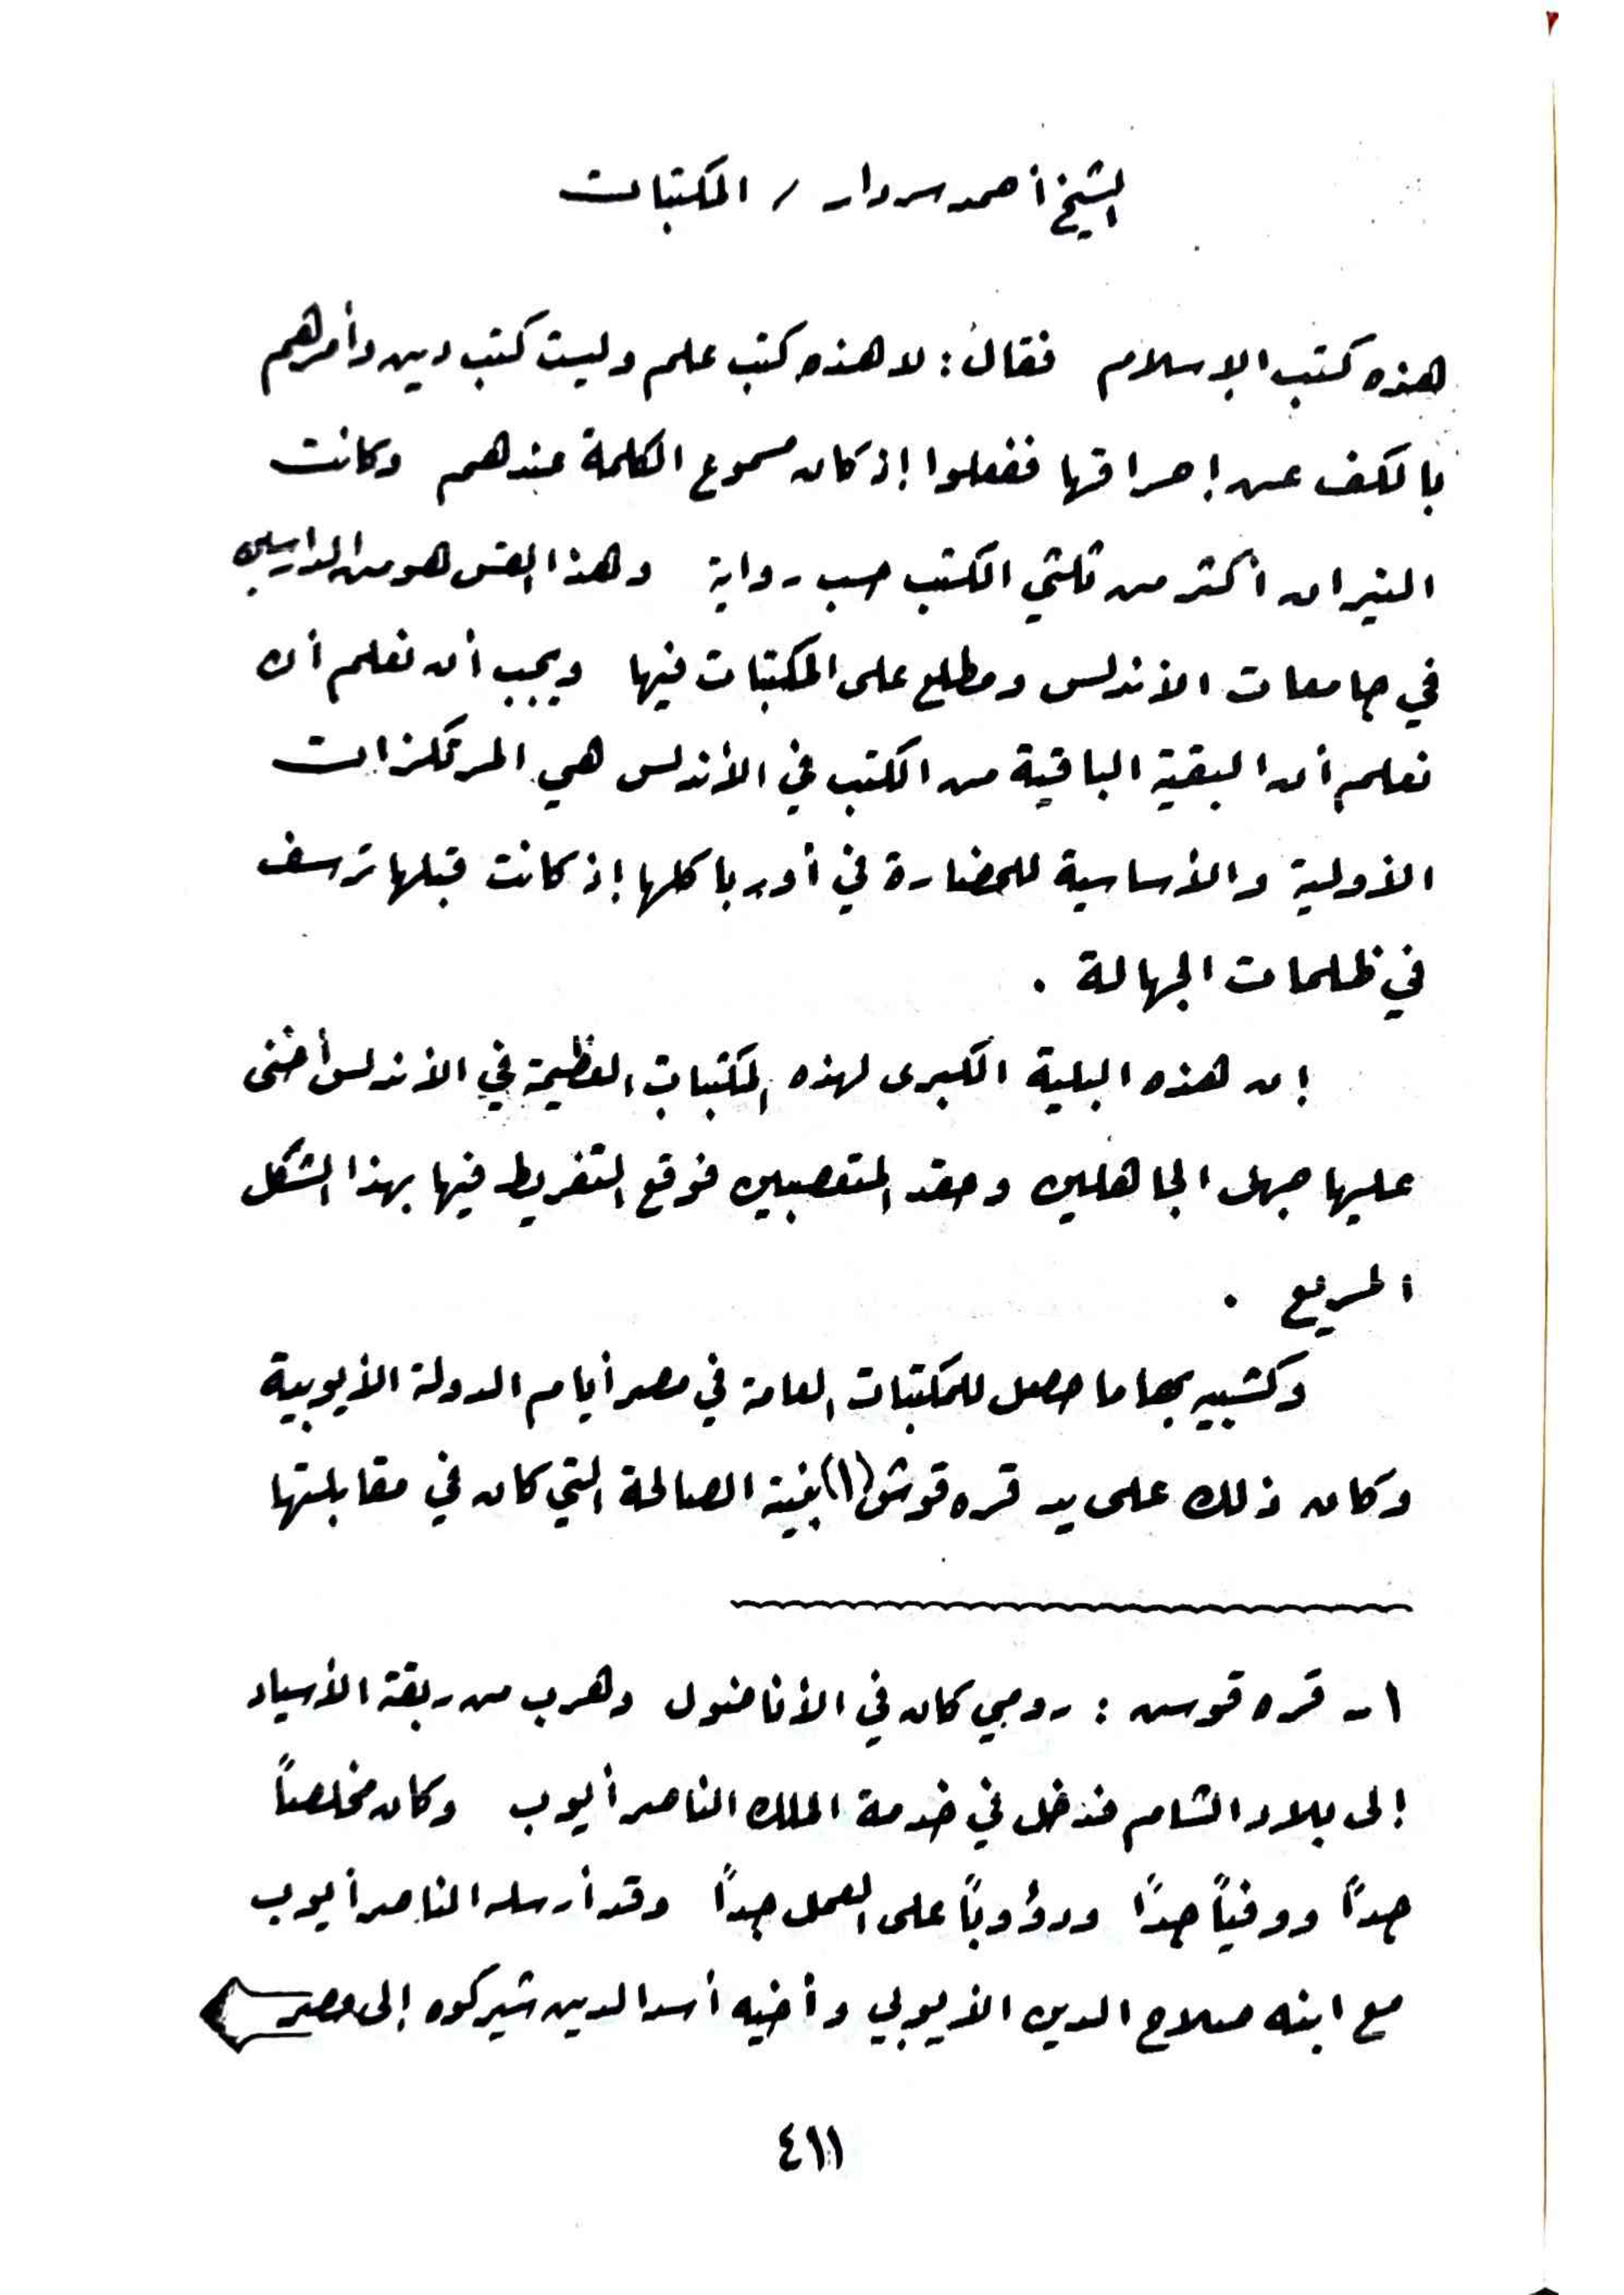 ٢
الشيخ أحمد سردار / المكتبات
هذه كتب الإسلام فقال: لا هذه كتب علم وليست كتب دين وأمرهم
بالكف عن إحراقها ففعلوا إذ كان مسموع الكلمة عندهم وكانت
النيران أكثر من ثلثي الكتب حسب رواية وهذا القس هو من الدارسين
في جامعات الأندلس ومطلع على المكتبات فيها ويجب أن نعلم أن
نعلم أن البقية الباقية من الكتب في الأندلس هي المرتكزات
الأولية والأساسية للحضارة في أوربا كلها إذ كانت قبلها ترسف
في ظلمات الجهالة .
إن هذه البلية الكبرى لهذه المكتبات العظيمة في الأندلس أخنى
عليها جهل الجاهلين وحقد المتعصبين فوقع التفريط فيها بهذا الشكل
المريع .
وكشبيه بها ما حصل للمكتبات العامة في مصر أيام الدولة الأيوبية
وكان ذلك على يد قره قوش (١) بنية الصالحة التي كان في مقابلتها
١ـ قره قوس : رومي كان في الأناضول وهرب من ربقة الأسياد
إلى بلاد الشام فدخل في خدمة الملك الناصر أيوب وكان مخلصاً
جداً ووفياً جداً ودؤوباً على العمل جداً وقد أرسله الناصر أيوب
مع ابنه صلاح الدين الأيوبي وأخيه أسد الدين شيركوه إلى مصر
٤١١